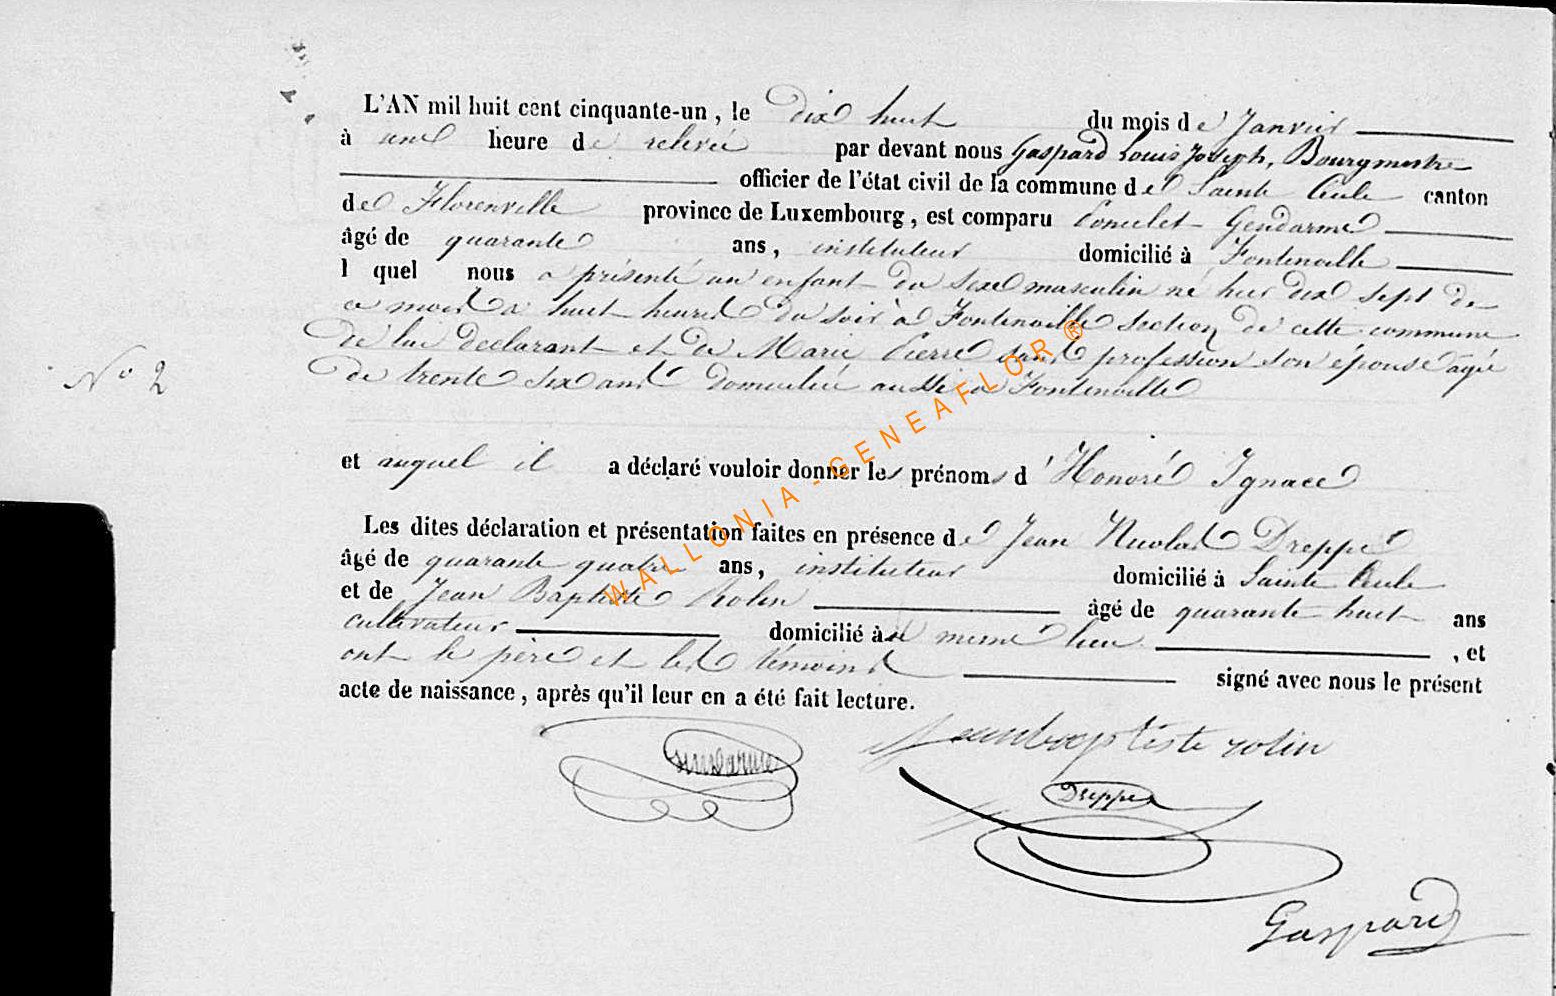 L'AN mil huit cent cinquante-un, le dix huit du mois de Janvier
à une heure de relevée par devant nous Gaspard Louis Joseph, Bourgmestre
officier de l'état civil de la commune de Sainte Cécile canton
de Florenville province de Luxembourg, est comparu Poncelet Gendarme
âgé de quarante ans, instituteur domicilié à Fontenoille
l quel nous a présenté un enfant du sexe masculin né hier dix sept de
ce mois à huit heures du soir à Fontenoille section de cette commune
de lui déclarant et de Marie Pierre sans profession son épouse agée
de trente six ans domiciliée aussi à Fontenoille
N° 2
et auquel il a déclaré vouloir donner les prénoms d'Honoré Ignace
Les dites déclaration et présentation faites en présence de Jean Nicolas Dreppe
âgé de quarante quatre ans, instituteur domicilié à Sainte Cécile
et de Jean Baptiste Rolin âgé de quarante huit ans
cultivateur domicilié à même lieu, et
ont le père et les témoins signé avec nous le présent
acte de naissance, après qu'il leur en a été fait lecture.
Jeanbaptiste rolin
Gendarme
Dreppe
Gaspard
WALLONIA - GENEAFLOR ®